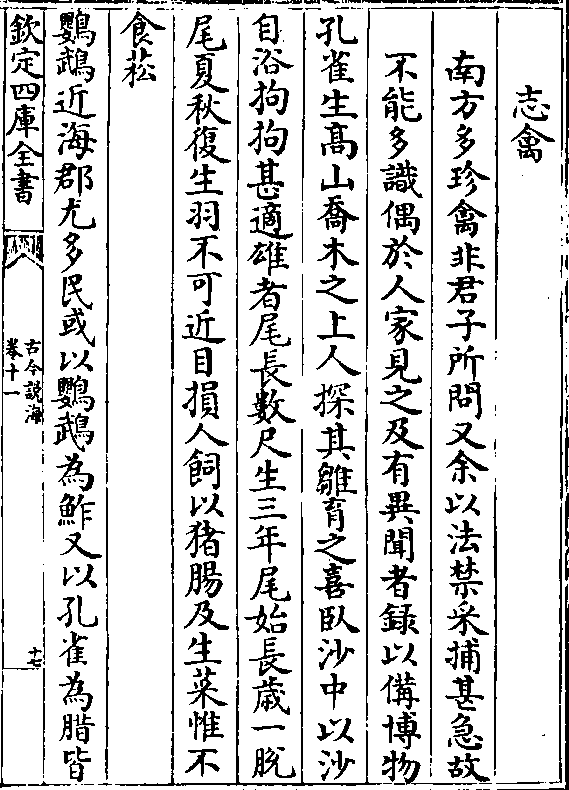 志禽
南方多珍禽非君子所問又余以法禁采捕甚急故
不能多識偶於人家見之及有異聞者録以備博物
孔雀生髙山喬木之上人探其雛育之喜臥沙中以沙
自浴拘拘甚適雄者尾長數尺生三年尾始長嵗一脫
尾夏秋復生羽不可近目損人飼以猪腸及生菜惟不
食菘
鸚鵡近海郡尤多民或以鸚鵡為鮓又以孔雀為腊皆
欽定四庫全書
古今說海
卷十一
十七